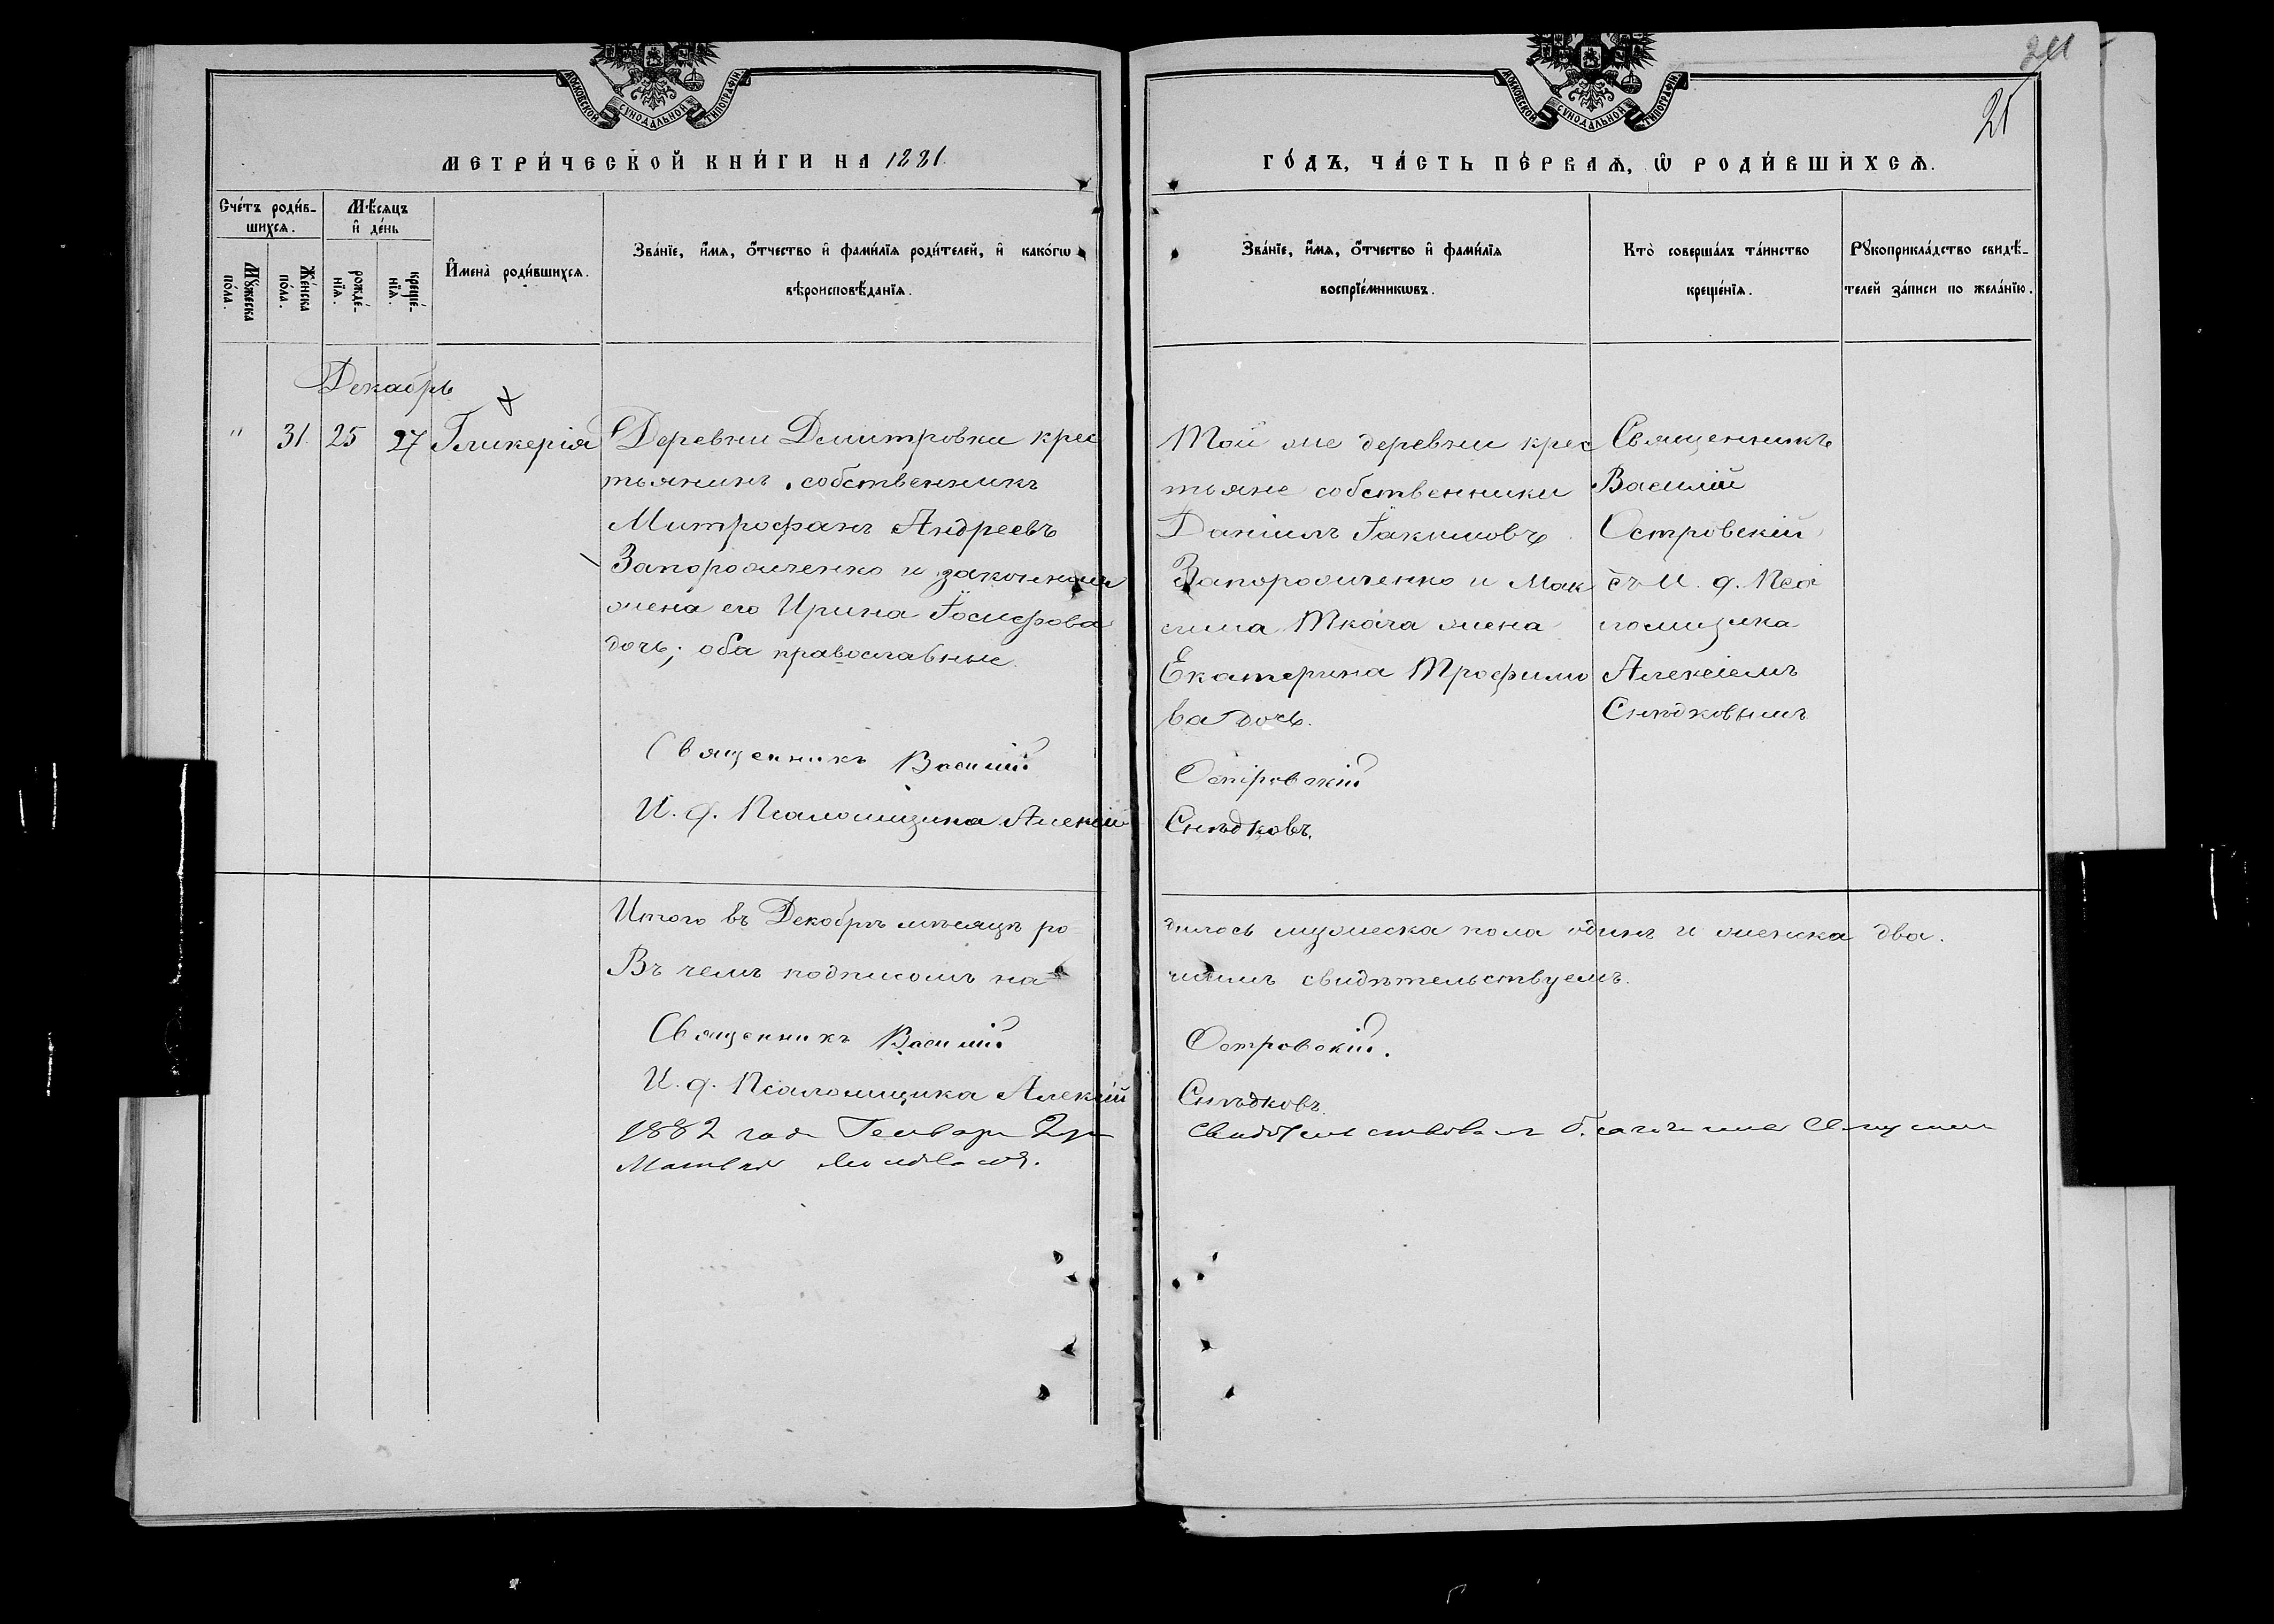 211
25
МОСКОВСКОЙ СУНОДАЛЬНОЙ ТИПОГРАФІИ
МОСКОВСКОЙ СУНОДАЛЬНОЙ ТИПОГРАФІИ
МЕТРИ́ЧЕСКОЙ КНИ́ГИ НА 1881.
ГО́ДЪ, ЧА́СТЬ ПЕ́РВАѦ, Ѡ҆ РОДИ́ВШИХСѦ.
Сче́тъ роди́в-
шихсѧ.
Мꙋ́жеска по́ла.
Же́нска по́ла.
Мѣ́сѧцъ
и҆ де́нь
рожде́-нїѧ.
креще́-нїѧ.
И҆мена̀ роди́вшихсѧ.
Зва́нїе, и҆́мѧ, ѻ҆́тчество и҆ фами́лїѧ роди́телей, и҆ како́гѡ
вѣроисповѣ́данїѧ.
Зва́нїе, и҆́мѧ, ѻ҆́тчество и҆ фами́лїѧ
воспрїе́мникѡвъ.
Кто̀ соверша́лъ та́инство
креще́нїѧ.
Рꙋкоприкла́дство свидѣ́-
телей за́писи по жела́нїю.
Декабрь
" 31. 25 27 Гликерія
Деревни Демитровки крес
тьянинъ собственникъ
Митрофанъ Андреевъ
Запорожченко и законная
жена его Ирина Іосифова
дочь; оба православные.
Священникъ Василій
И. д. Псаломщика Алексій
Той же деревни крес
тьяне собственники
Даніилъ Іакимовъ
Запорожченко и Мак
сима Ткача жена
Екатерина Трофимо
ва дочь.
Островскій
Снѣдковъ.
Священникъ
Василій
Островскій
съ И. д. Пса
ломщика
Алексіемъ
Снѣдковымъ
Итого въ Декабрѣ мѣсяцѣ ро
дилось мужеска пола одинъ и женска два.
Въ чемъ подписомъ на
шимъ свидѣтельствуемъ.
Священникъ Василій
Островскій.
И. д. Псаломщика Алексій
Снѣдковъ.
1882 года Генваря 2 дня
свидѣтельствовалъ благочинный Священникъ
Матвей